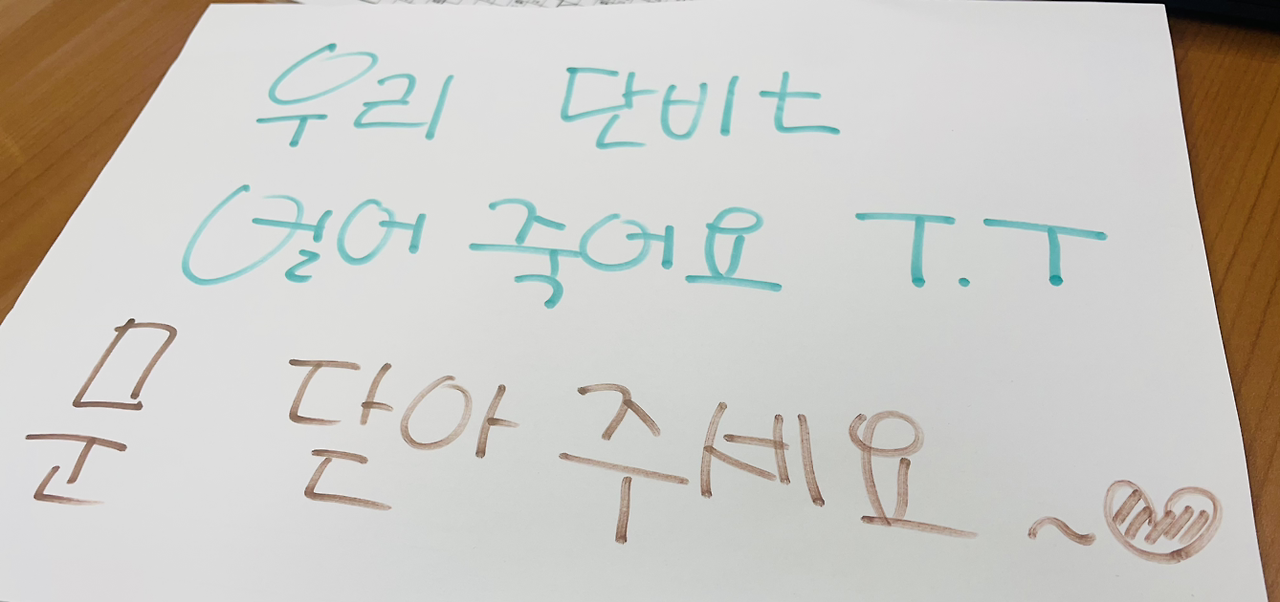 우리 단비 얼어 죽어요 T.T
문 닫아 주세요~♡